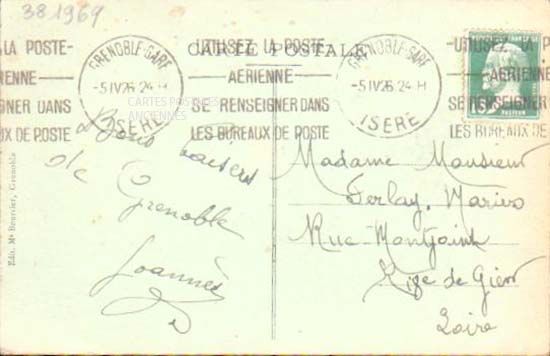 381969
CARTE POSTALE
LA POSTE-
RIENNE-
GNER DANS
UX DE POSTE
GRENOBLE-GARE
-5 IV 26 24 H
ISERE
UTILISEZ LA POSTE
AERIENNE
SE RENSEIGNER DANS
LES BUREAUX DE POSTE
GRENOBLE-GARE
-5 IV 26 24 H
ISERE
UTILISEZ LA POSTE
AERIENNE
SE RENSEIGNER
LES BUREAUX DE
PASTEUR
CARTES POSTALES
ANCIENNES
Bons Baisers
de
Grenoble
Joannès
Madame Monsieur
Derlay Marius
Rue Montjoint
Rige de Gier
Loire
Edit. Me Bourcier, Grenoble